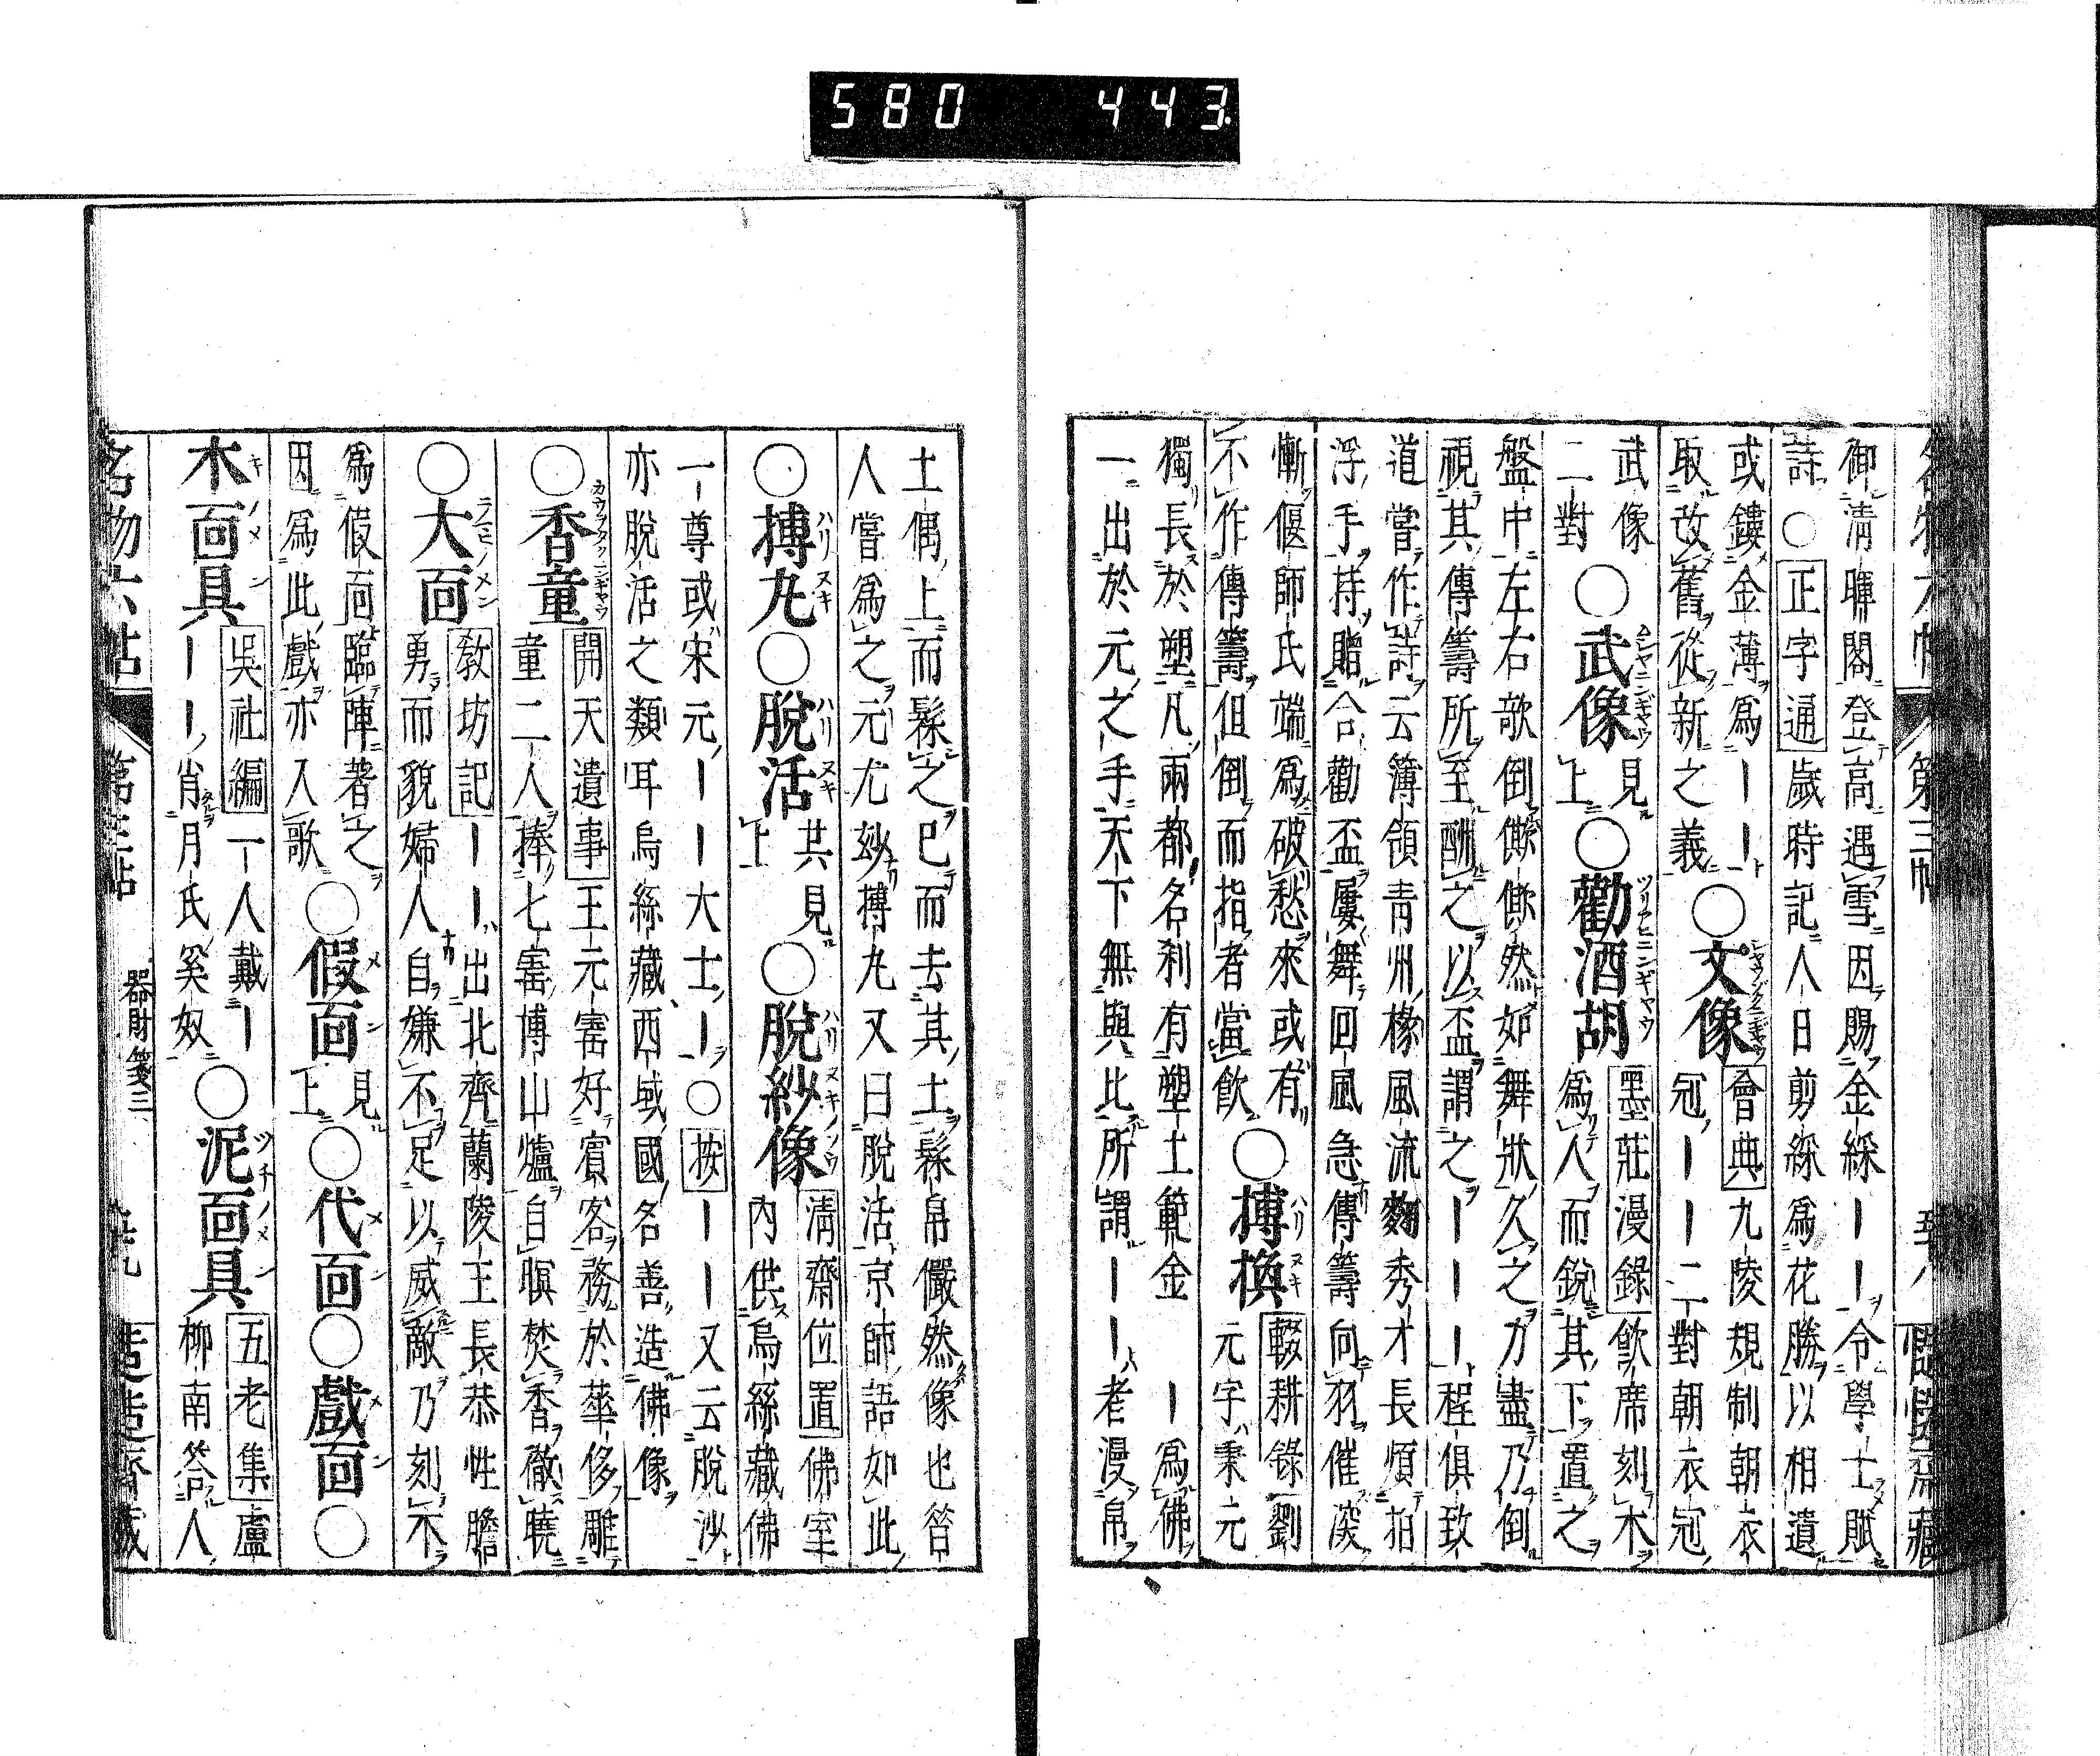 580 443
御清暉閣登高遇雪因賜金綵一一令學士賦
詩○正字通歲時記人日剪綵爲花勝以相遺
或鏤金薄爲一一
取改舊從新之義○文像會典九陵規制朝衣
冠一一二對朝衣冠
武像
二對○武像見
上○勸酒胡墨莊漫錄飲席刻木
爲人而銳其下置之
盤中左右欹倒僛僛然如舞狀久之力盡乃倒
視其傳籌所至酬之以盃謂之一一一程俱致
道嘗作詩云簿領青州掾風流麴秀才長煩拍
浮手持贈合勸盃屢舞回風急傳籌向羽催深
慚偃師氏端爲破愁來或有
不作傳籌但倒而指者當飲○摶換輟耕錄劉
元字秉元
獨長於塑凡兩都名刹有塑土範金一爲佛
一出於元之手天下無與比所謂一一老漫帛
土偶上而髹之已而去其土髹帛儼然像也笞
人嘗爲之元尤玅摶丸又曰脫活京師語如此
○摶丸○脫活共見
上○脫紗像清齋位置佛室
內供烏絲藏佛
一尊或宋元一一大士一○按一一又云脫沙
亦脫活之類耳烏絲藏西域國名善造佛像
○香童開天遺事王元寚好賓客務於華侈雕
童二人捧七寚博山爐自暝焚香徹曉
○大面教坊記一一出北齊蘭陵王長恭性膽
勇而貌婦人自嫌不足以威敵乃刻木
爲假面臨陣著之
因爲此戲亦入歌○假面見
上○代面○戲面○
木面具吳社編一人戴一
一一肖月氏奚奴○泥面具五老集盧
柳南答人
名物六帖 第三帖 器財箋三